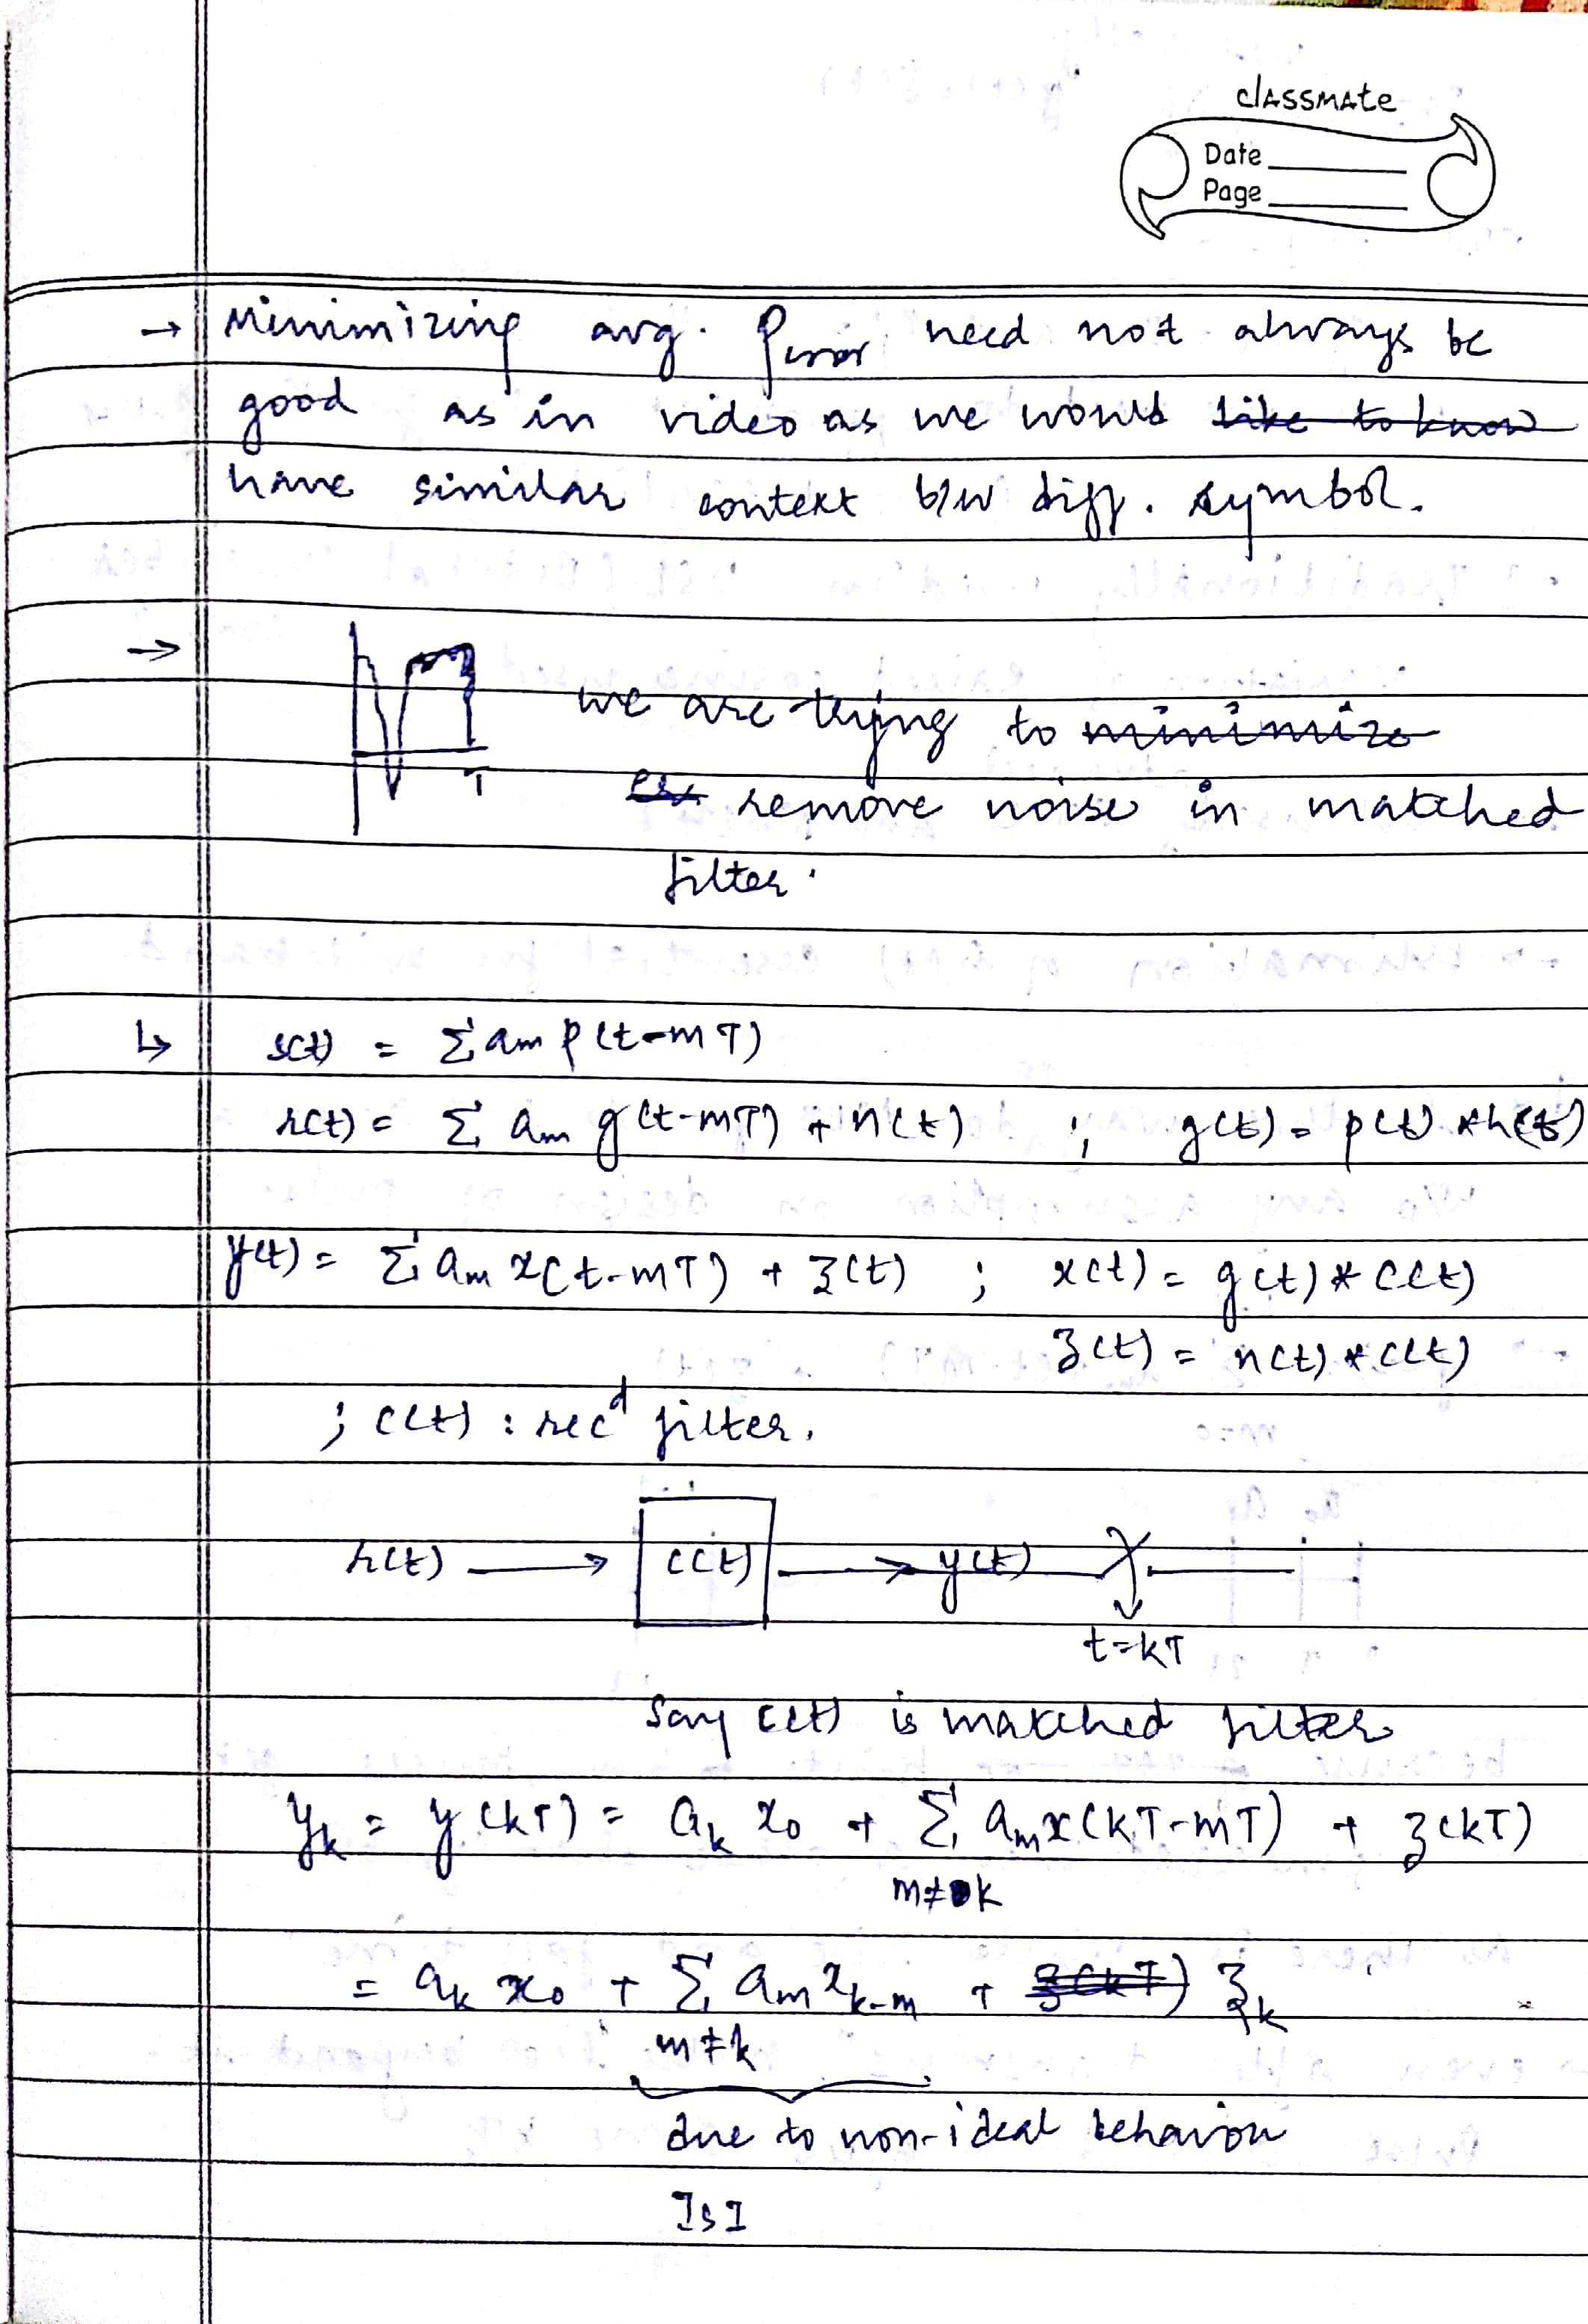 classmate
Date
Page
→ Minimizing avg. Perror need not always be
good as in video as we would like to know
have similar context b/w diff. symbol.
→ we are trying to minimize
remove noise in matched
T
filter.
↳ s(t) = Σ am p(t-mT)
r(t) = Σ am g(t-mT) + n(t) ; g(t) = p(t) * h(t)
y(t) = Σ am x(t-mT) + z(t) ; x(t) = g(t) * c(t)
z(t) = n(t) * c(t)
; c(t) : recd filter.
r(t) → c(t) → y(t)
t=kT
Say c(t) is matched filter
yk = y(kT) = ak x0 + Σ am x(kT-mT) + z(kT)
m≠k
= ak x0 + Σ am xk-m + z(kT) zk
m≠k
due to non-ideal behaviou
ISI